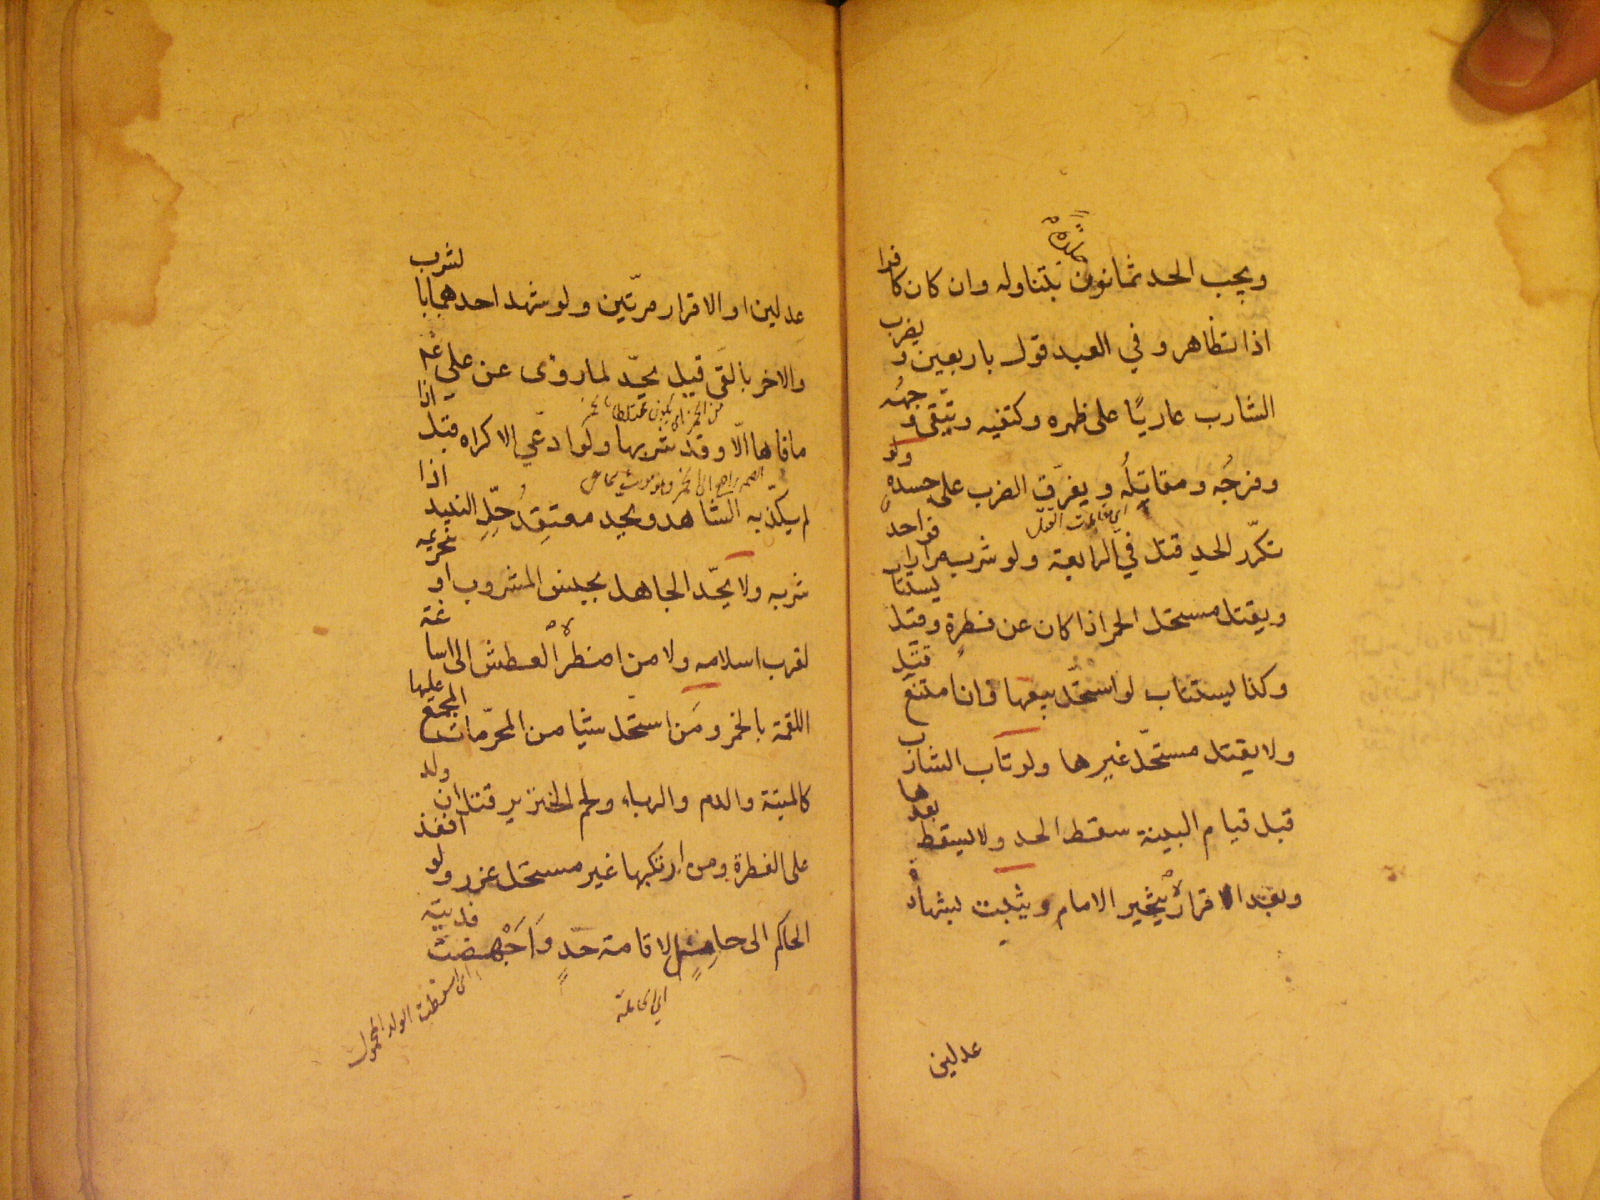 ويجب الحد ثمانون جلدة بتناوله وان كان كافرا
اذا تظاهر وفي العبد قول باربعين ويضرب
الشارب عاريًا على ظهره وكتفيه ويتّقى وجهُه
وفرجُه ومقاتِلُه ويفرّق الضرب على جسده ولو
اي مقامات القتل
تكرّر الحد قتل في الرابعة ولو شرب مرارا فواحد
ويقتل مستحل الخمر اذا كان عن فطرة وقيل يستتاب
وكذا يستتاب لو استحلّ بيعها فان امتنع قتل
ولا يقتل مستحلّ غيرها ولو تاب الشارب
قبل قيام البينة سقط الحد ولا يسقط بعدها
وبعد الاقرار يتخير الامام ويثبت بشهادة
عدلين
عدلين او الاقرار مرّتين ولو شهد احدهما بالشرب
والاخر بالقي قيل يحدّ لما روى عن علي عم
ما قاها الّا وقد شربها ولو ادعى الاكراه قبل اذا
لم يكذّبه الشاهد ويحد معتقِدُ حِلِّ النبيد اذا
شربه ولا يحّد الجاهل بجنس المشروب او تحريمه
لقرب اسلامه ولا من اضطر العطش الى اساغة
اللقمة بالخمر ومن استحل شيئا من المحرّمات المجمع عليها
كالميتة والدم والرباء ولحم الخنزير قتل ان ولد
على الفطرة ومن ارتكبها غير مستحل عزر ولو انفذ
الحاكم الى حامل لاقامة حدٍّ فاَجْهضت فديته
اي اسقطت الولد المحمول